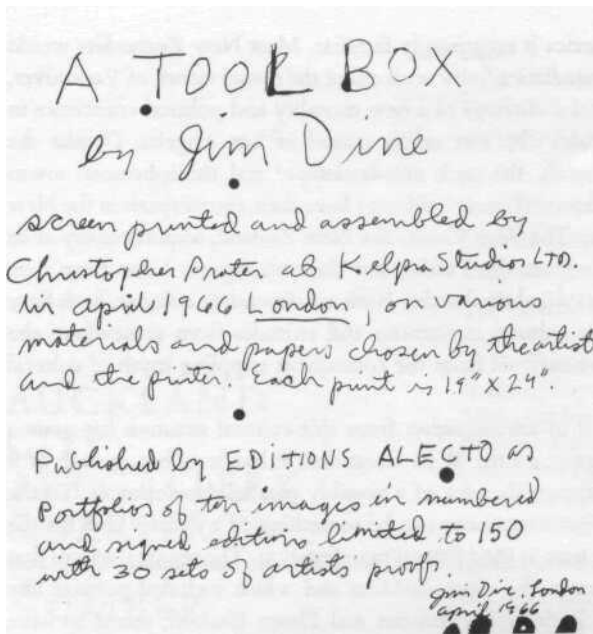 A TOOL BOX
by Jim Dine
screen printed and assembled by
Christopher Prater at Kelpra Studios LTD.
in april 1966 London, on various
materials and papers chosen by the artist
and the printer. Each print is 19" X 24".
Published by EDITIONS ALECTO as
Portfolios of ten images in numbered
and signed editions limited to 150
with 30 sets of artists proof.
Jim Dine, London
april 1966